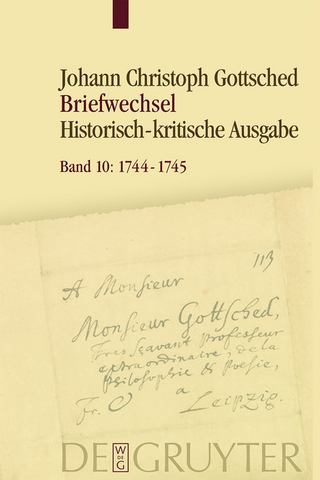 Johann Christoph Gottsched
Briefwechsel
Historisch-kritische Ausgabe
Band 10: 1744-1745
113
A Monsieur
Monsieur Gottsched,
Tres Sçavant Professeur
extraordinaire, de la
Philosophie & Poesie,
Fr. a
Leipzig.
DE GRUYTER
W
DE
G